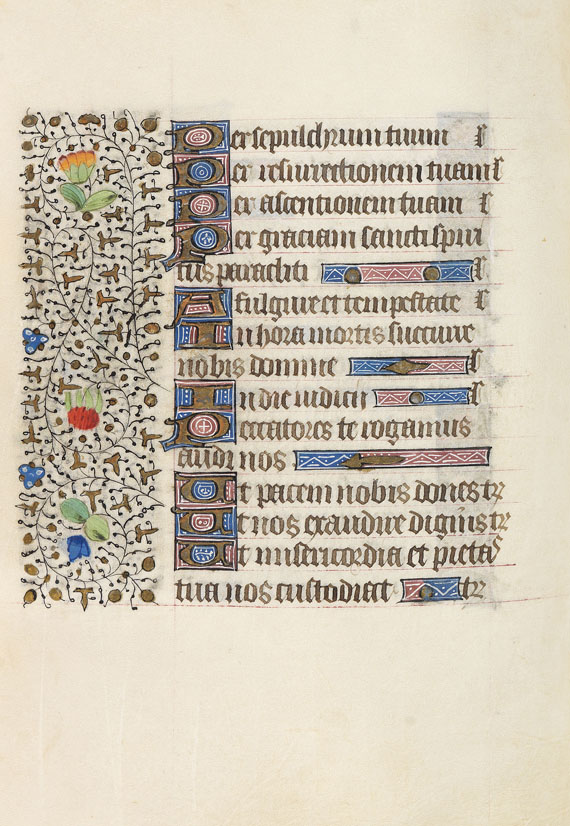 Per sepulchrum tuum l
Per resurrectionem tuam l
Per ascentionem tuam l
Per graciam sancti spiri
tus paracliti l
A fulgure et tempestate l
In hora mortis succure
nobis domine l
In die iudicii l
Peccatores te rogamus
audi nos
Ut pacem nobis dones tr
Ut nos exaudire digneris tr
Ut misericordia et pietas
tua nos custodiat tr